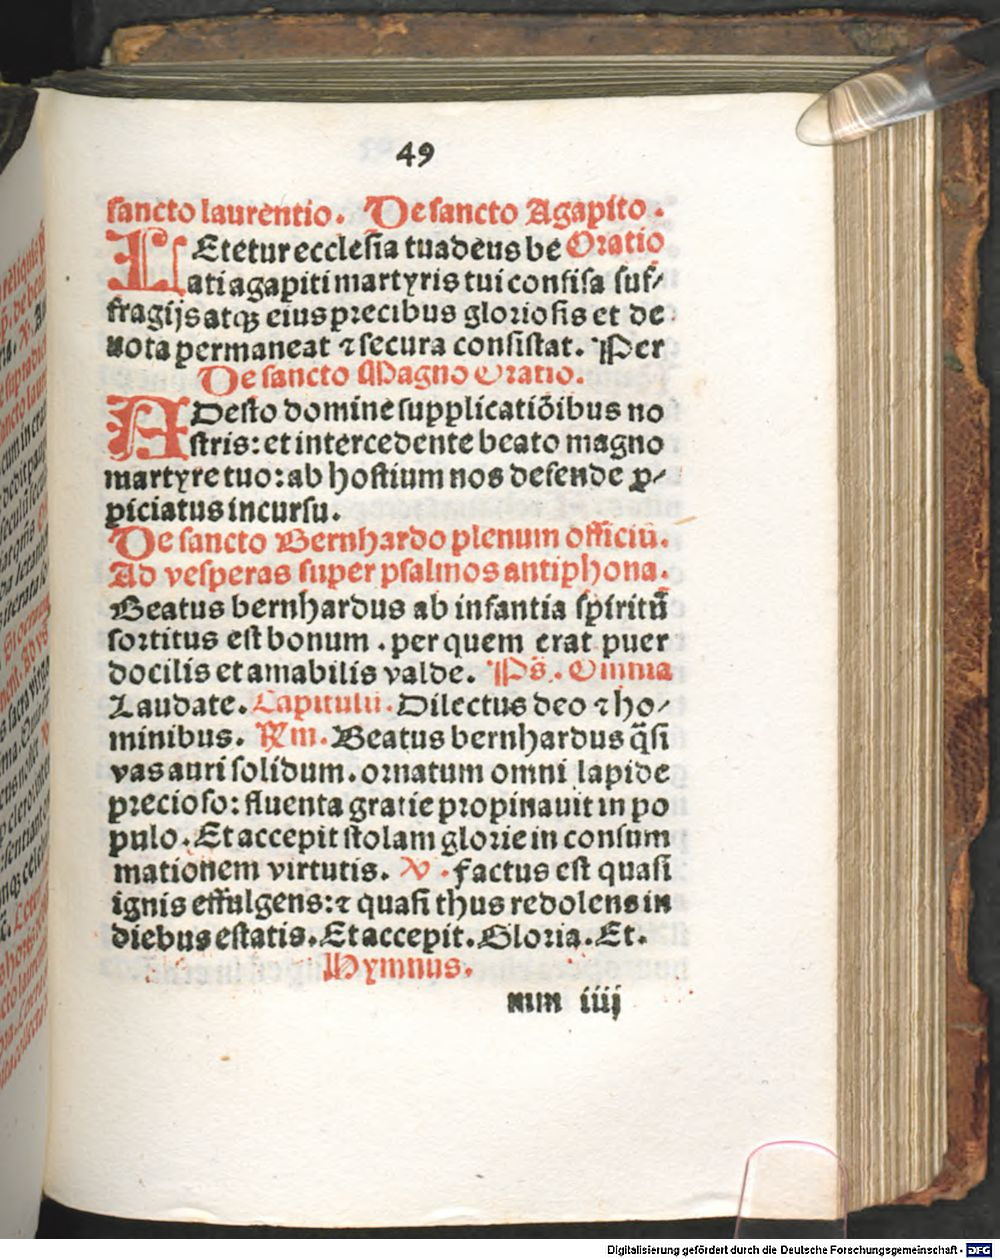 49
sancto laurentio. De sancto Agapito.
LEtetur ecclesia tua deus be Oratio
ati agapiti martyris tui confisa suf⸗
fragijs atqꝫ eius precibus gloriosis et de
uota permaneat ⁊ secura consistat. Per
De sancto Magno Oratio.
ADesto domine supplicatiōibus no
stris: et intercedente beato magno
martyre tuo: ab hostium nos defende ꝓ⸗
piciatus incursu.
De sancto Bernhardo plenum officiū.
Ad vesperas super psalmos antiphona.
Beatus bernhardus ab infantia spiritū
sortitus est bonum. per quem erat puer
docilis et amabilis valde. Ps. Omnia
Laudate. Capitulū. Dilectus deo ⁊ ho⸗
minibus. Rm. Beatus bernhardus q̄si
vas auri solidum. ornatum omni lapide
precioso: fluenta gratie propinauit in po
pulo. Et accepit stolam glorie in consum
mationem virtutis. V. Factus est quasi
ignis effulgens: ⁊ quasi thus redolens in
diebus estatis. Et accepit. Gloria. Et.
Hymnus.
nnn iiij
Digitalisierung gefördert durch die Deutsche Forschungsgemeinschaft - DFG